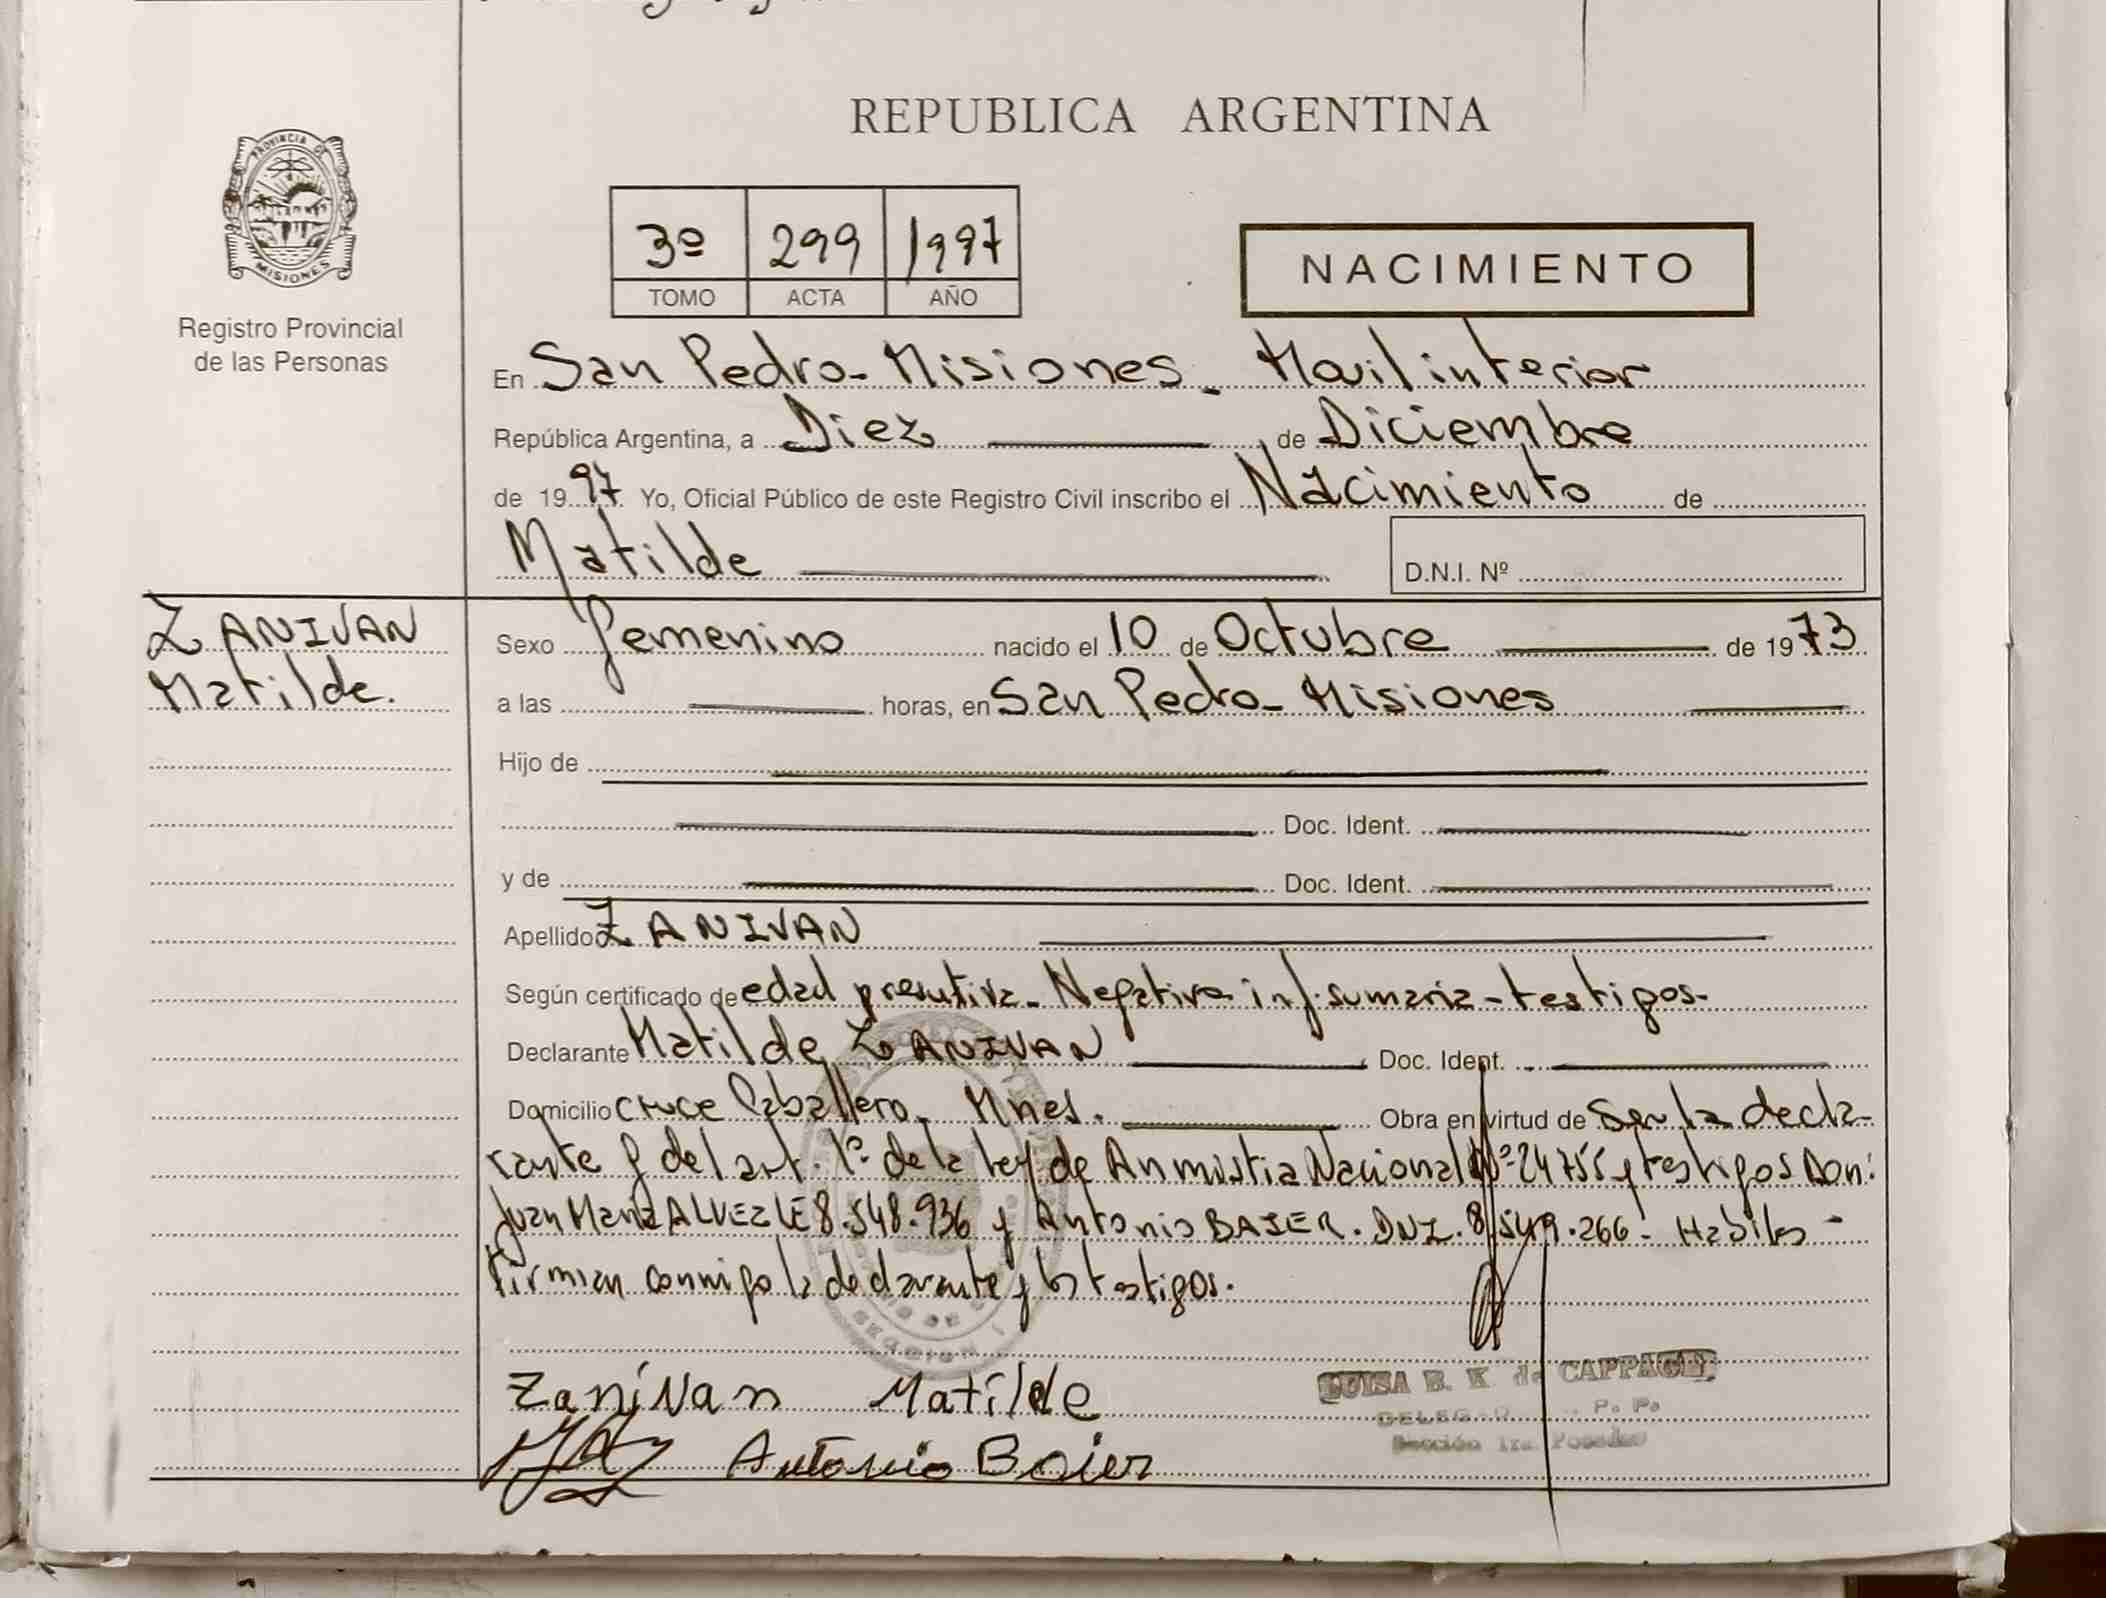 REPUBLICA ARGENTINA
PROVINCIA DE
MISIONES
Registro Provincial
de las Personas
3º 299 1997
TOMO ACTA AÑO
NACIMIENTO
En San Pedro - Misiones - Movil interior
República Argentina, a Diez de Diciembre
de 1997 Yo, Oficial Público de este Registro Civil inscribo el Nacimiento de
Matilde
D.N.I. Nº
ZANIVAN
Matilde.
Sexo femenino nacido el 10 de Octubre de 1973
a las horas, en San Pedro - Misiones
Hijo de
Doc. Ident.
y de Doc. Ident.
Apellido ZANIVAN
Según certificado de edad presutiva - Negativa inf. sumaria - testigos.
Declarante Matilde ZANIVAN Doc. Ident.
Domicilio Cruce Caballero - Mnes. Obra en virtud de ser la decla-
rante y del art. 1º de la Ley de Anmistia Nacional Nº 24755 y testigos Don:
Juan Maria ALVEZ LE 8.548.936 y Antonio BAIER. DNI. 8.549.266 - Habiles -
Firman conmigo la declarante y los testigos.
SECCION 1
Zanivan Matilde
Antonio Baier
LUISA B. K de CAPPAGLI
Sección 1ra. Posadas